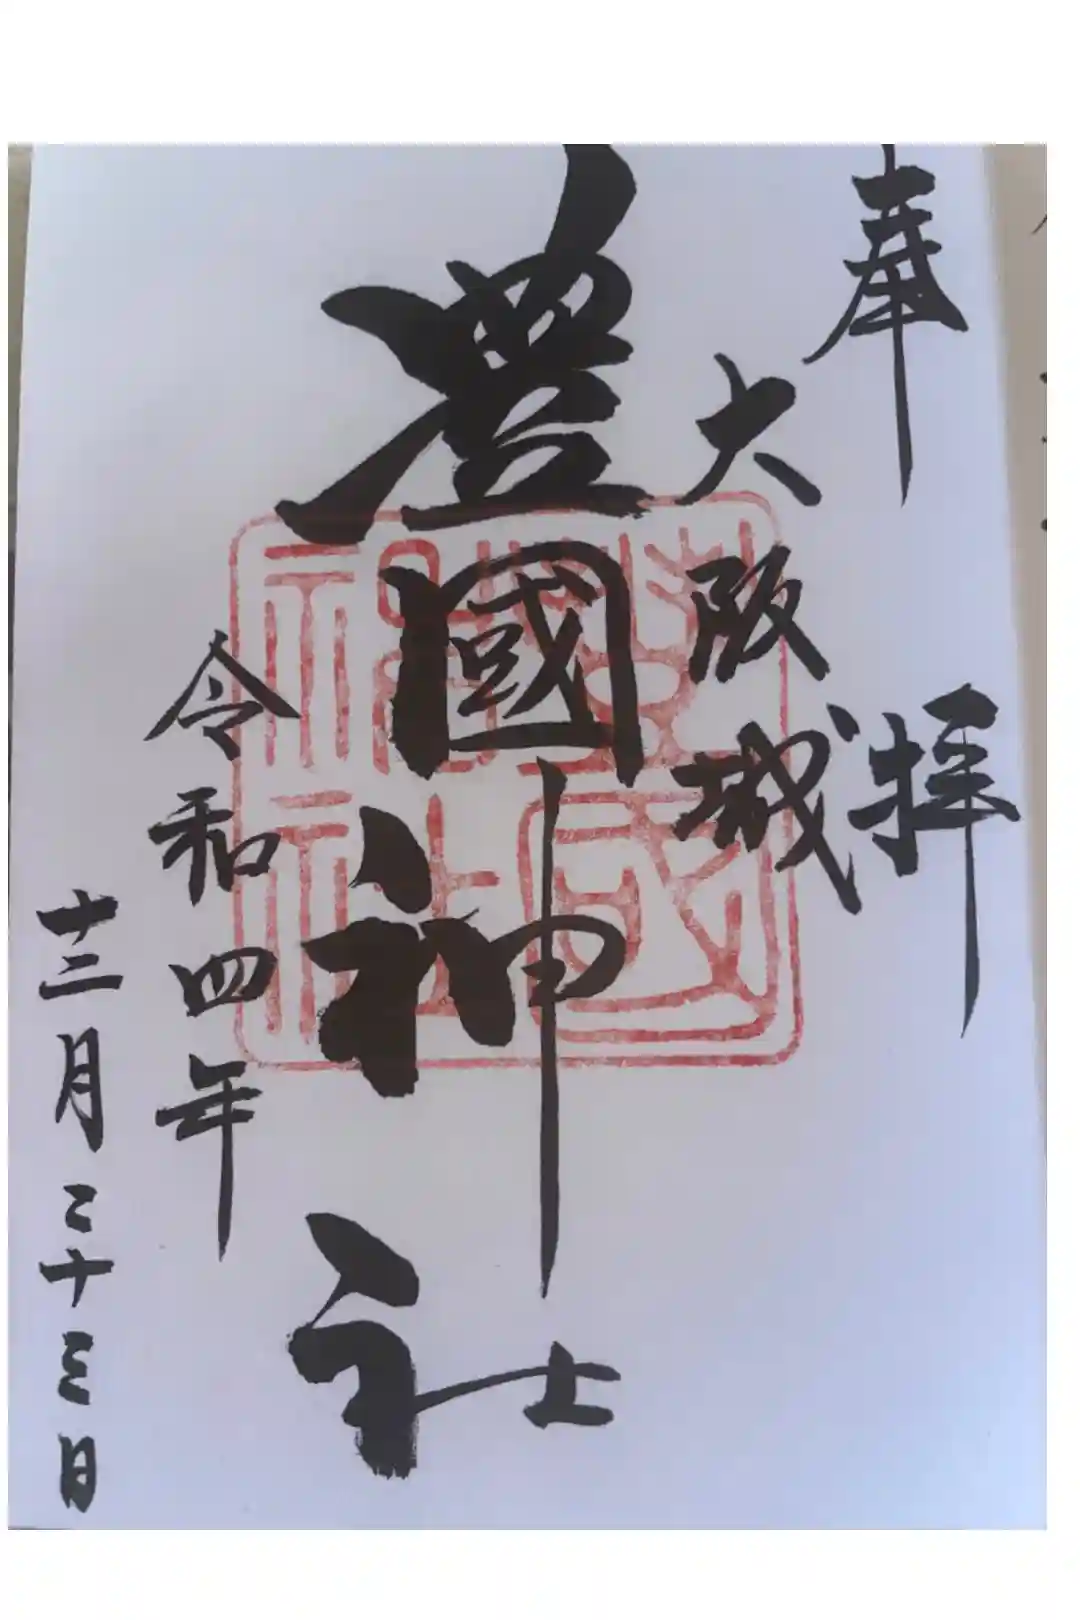 奉拝
大阪城
豊國神社
令和四年
十二月二十三日
豊國
神社